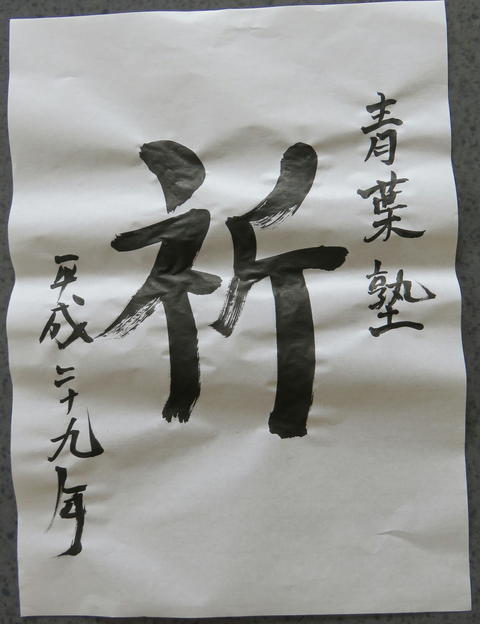 青葉塾
祈
平成二十九年